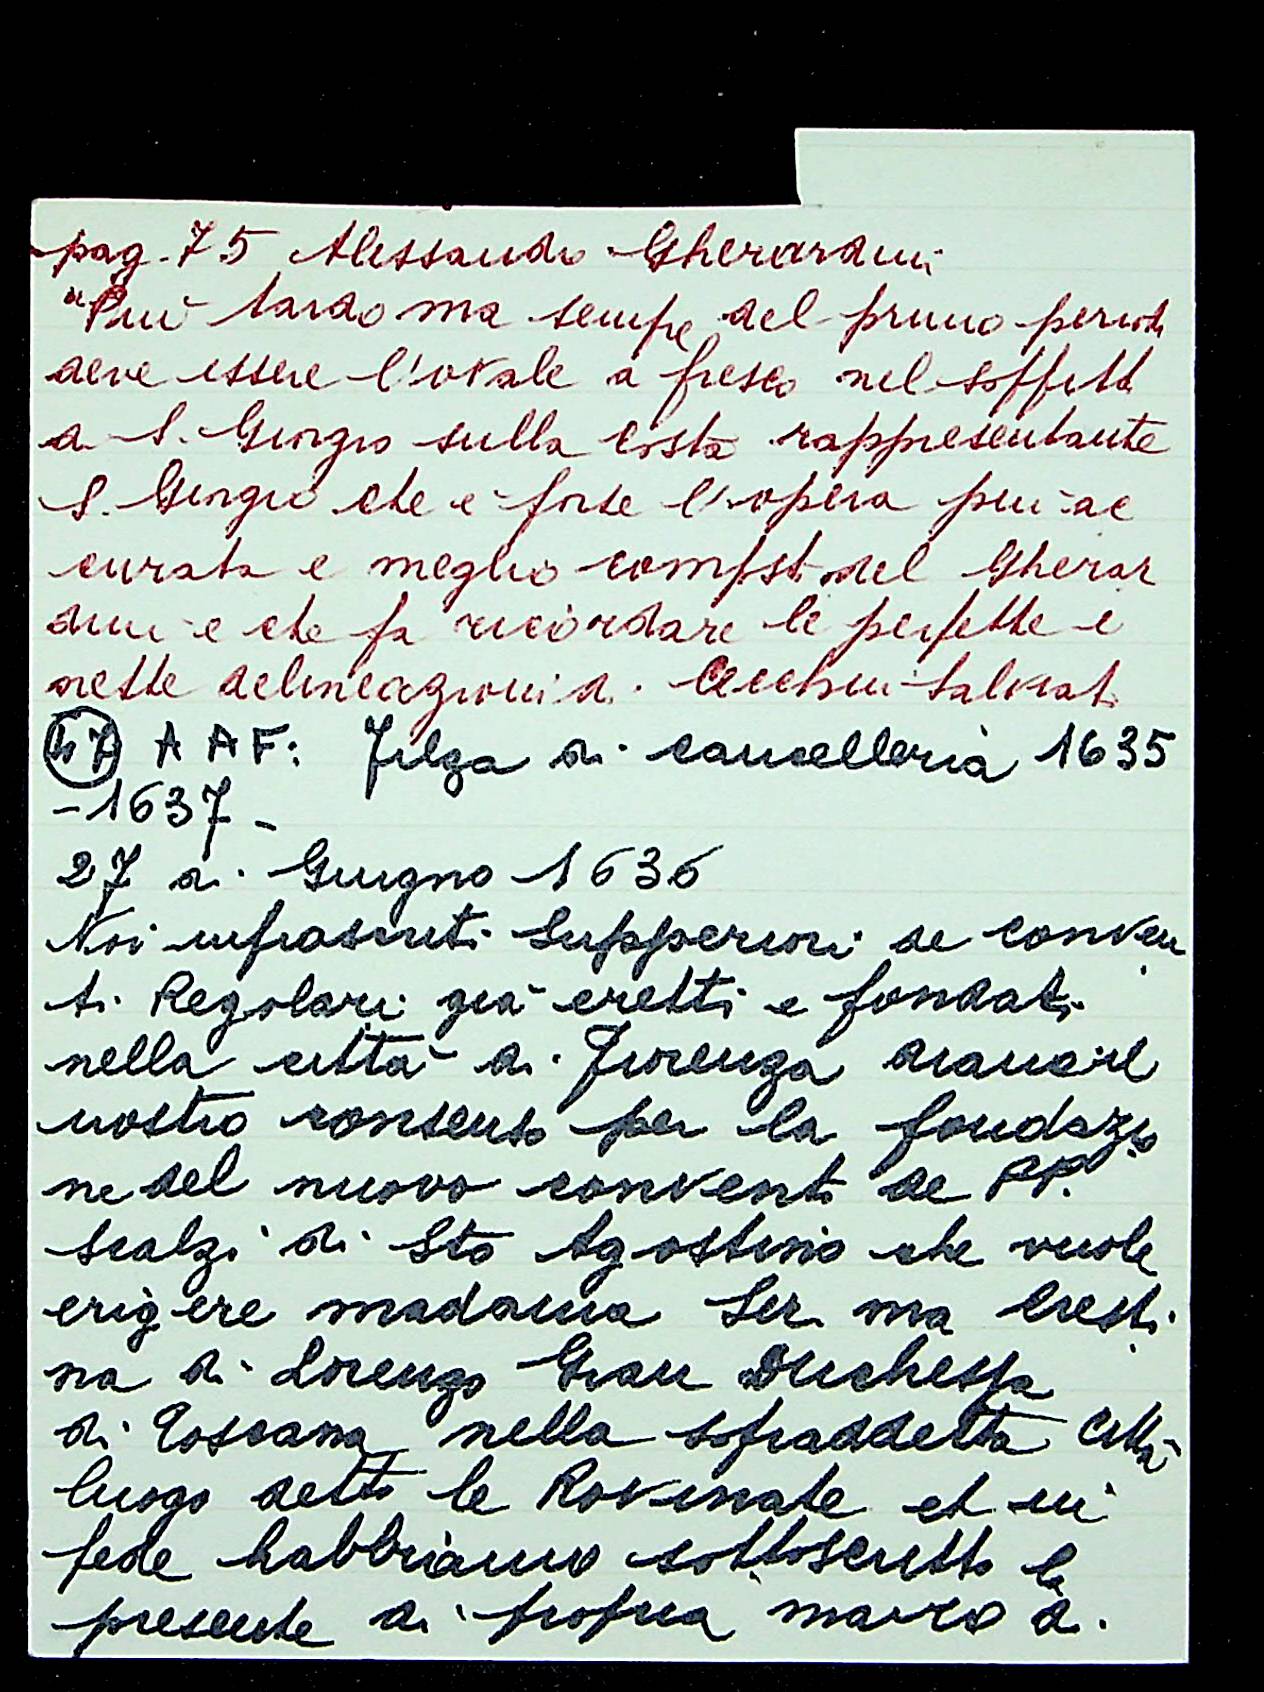 pag. 75 Alessandro Gherardini
"Più tardo ma sempre del primo periodo
deve essere l'ovale a fresco nel soffitto
di S. Giorgio sulla Costa rappresentante
S. Giorgio che è forse l'opera più ac
curata e meglio composta del Gherar
dini e che fa ricordare le perfette e
nette delineazioni di Cecchin Salviati
47 A A F: Filza di cancelleria 1635
-1637-
27 di Giugno 1636
Noi infrascritti Supperiori de conven
ti Regolari già eretti e fondati
nella città di Fiorenza diamo il
nostro consenso per la fondazio
ne del nuovo convento de PP.
Scalzi di Sto Agostino che vuole
erigere madama Ser. ma Cresti
na di Lorenzo Gran Duchessa
di Toscana nella sopraddetta Città
luogo detto le Rovinate et in
fede habbiamo sottoscritto la
presente di propria mano di.